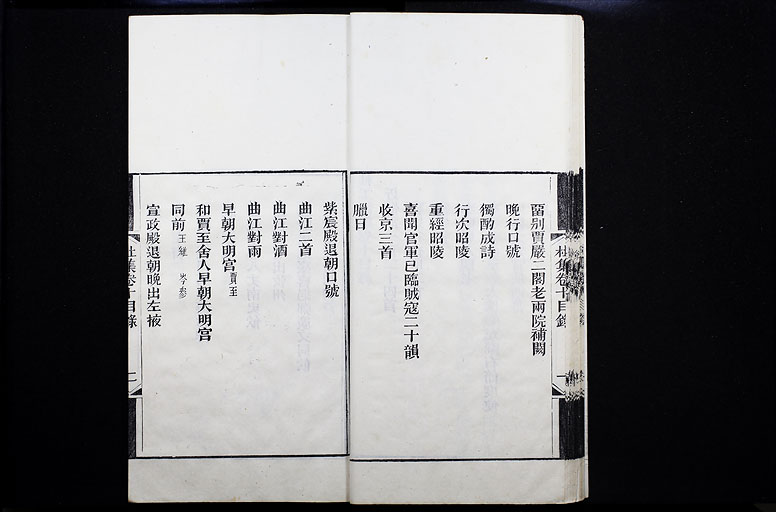 杜集卷十目錄
一
畱別賈嚴二閣老兩院補闕
晚行口號
獨酌成詩
行次昭陵
重經昭陵
喜聞官軍已臨賊寇二十韻
收京三首
臘日
紫宸殿退朝口號
曲江二首
曲江對酒
曲江對雨
早朝大明宮賈至
和賈至舍人早朝大明宮
同前王維 岑參
宣政殿退朝晚出左掖
杜集卷十目錄
二